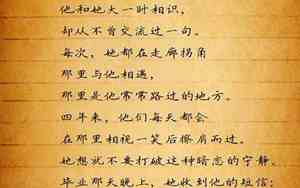 他和她大一时相识，
却从不曾交流过一句。
每次，她都在走廊拐角
那里与他相遇，
那里是他常常路过的地方。
四年来，他们每天都会
在那里相视一笑后擦肩而过。
她想就不要打破这种暗恋的宁静。
毕业那天晚上，她收到他的短信：